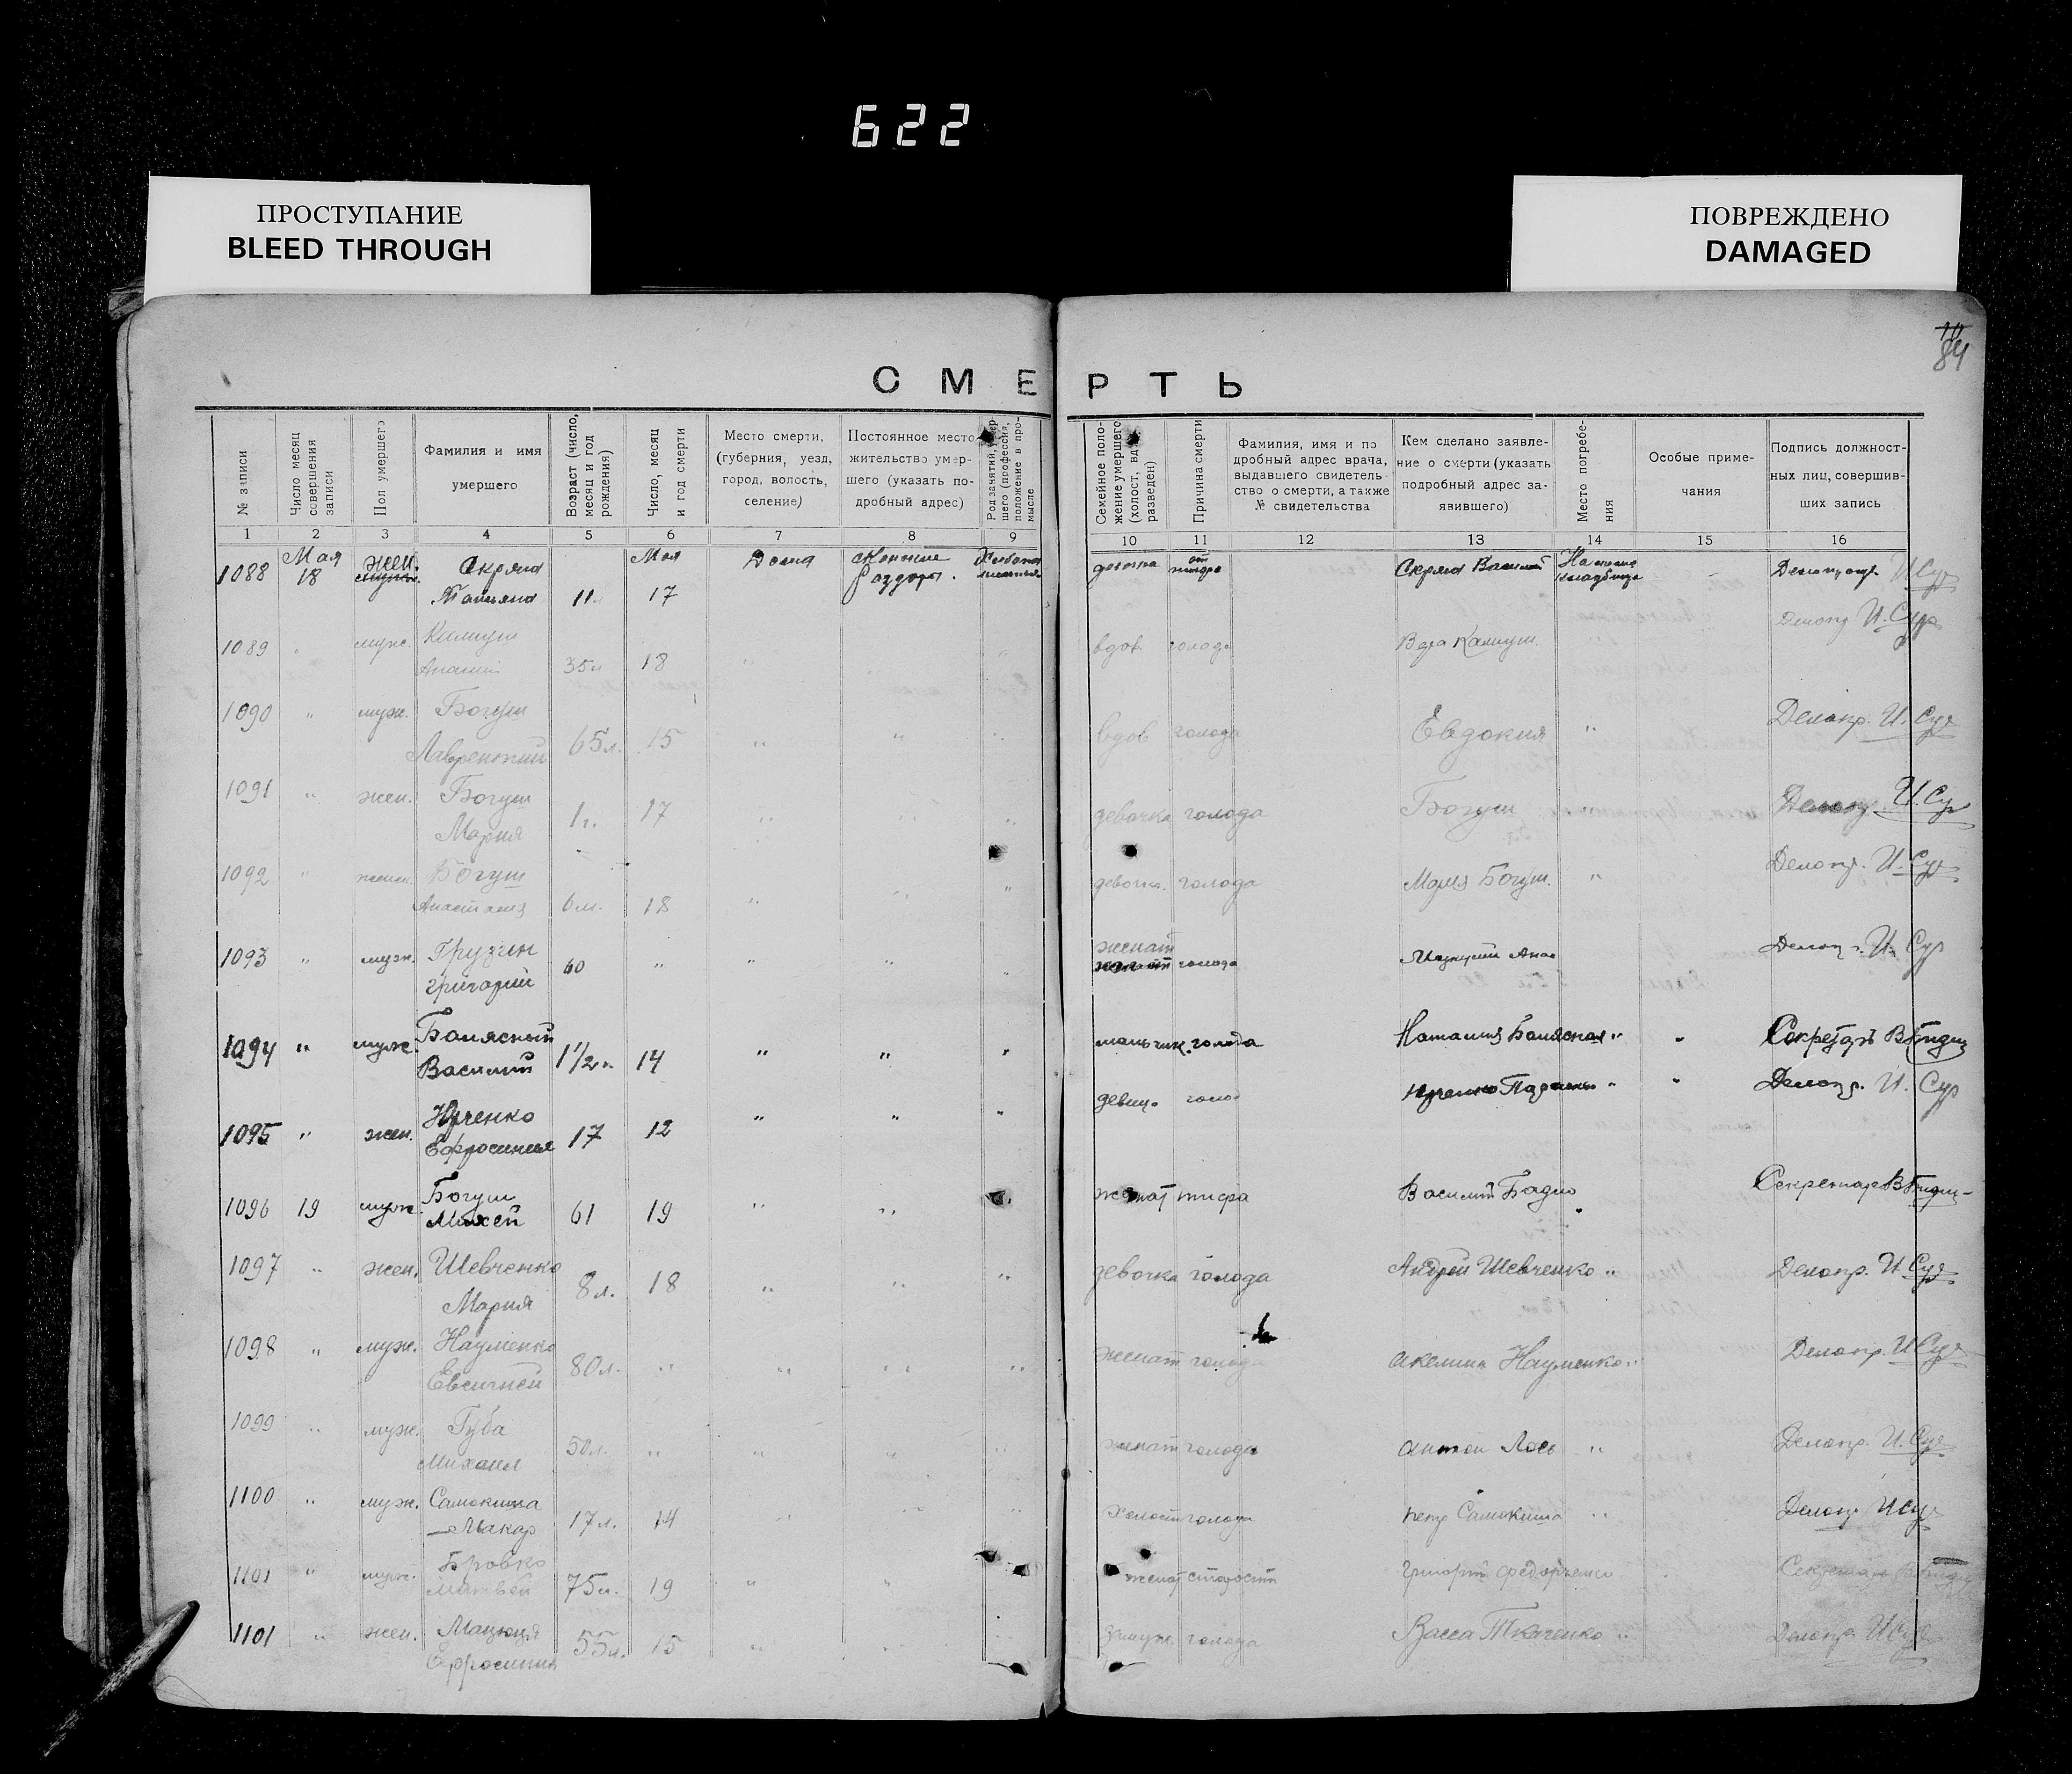 622
ПРОСТУПАНИЕ
BLEED THROUGH
ПОВРЕЖДЕНО
DAMAGED
84
СМЕРТЬ
№ записи
Число месяц совершения записи
Пол умершего
Фамилия и имя умершего
Возраст (число, месяц и год рождения)
Число, месяц и год смерти
Место смерти, (губерния, уезд, город, волость, селение)
Постоянное место жительство умершего (указать подробный адрес)
Род занятий, умершего (профессия, положение в промысле
Семейное положение умершего (холост, вдов, разведен)
Причина смерти
Фамилия, имя и подробный адрес врача, выдавшего свидетельство о смерти, а также № свидетельства
Кем сделано заявление о смерти (указать подробный адрес заявившего)
Место погребения
Особые примечания
Подпись должностных лиц, совершивших запись
1 2 3 4 5 6 7 8 9 10 11 12 13 14 15 16
1088 Мая 18 жен. Скряга 11 Мая 17 Дома Раздоры девочка от тифа Скряга Василий
1089 " муж. 35 л 18 " вдов голода Вера Делопр. И. Сур
1090 " муж. Богуш Лаврентий 65 л. 15 " " " вдов голода Евдокия " Делопр. И. Сур
1091 " жен. Богуш Мария 1 г. 17 " " " девочка голода Богуш " Делопр. И. Сур
1092 " Богуш Анастасия 6 м. 18 " " " девочка голода Мария Богуш. " Делопр. И. Сур
1093 " муж. Грузин Григорий 60 " " " " женат голода Делопр. И. Сур
1094 " муж. Василий 1 1/2 г. 14 " " " мальчик. голода Наталия " " Секретарь
1095 " жен. Юрченко Ефросиния 17 12 " " " девица голод " " Делопр. И. Сур
1096 19 муж. Богуш Михей 61 19 " " женат тифа Василий Секретарь
1097 " жен. Шевченко Мария 8 л. 18 " " " девочка голода Андрей Шевченко " Делопр. И. Сур
1098 " муж. Науменко 80 л. " " " " женат голода Акелина Науменко " Делопр. И. Сур
1099 " муж. Губа Михаил 50 л. " " " " женат голода Антон Лось " Делопр. И. Сур
1100 " муж. Самокиша Макар 17 л. 14 " " " холост голода Петр Самокиша " Делопр. И. Сур
1101 " муж. Бровко Матвей 75 л. 19 " " женат старости Григорий Федорченко Секретарь
1101 " жен. Ефросиния 55 л. 15 " " " замуж. голода Васса Ткаченко " Делопр. И. Сур